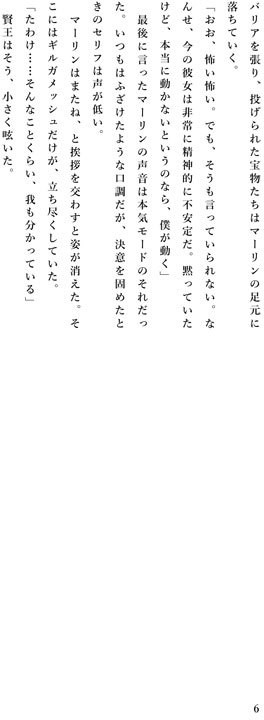 バリアを張り、投げられた宝物たちはマーリンの足元に
落ちていく。
「おお、怖い怖い。でも、そうも言っていられない。な
んせ、今の彼女は非常に精神的に不安定だ。黙っていた
けど、本当に動かないというのなら、僕が動く」
　最後に言ったマーリンの声音は本気モードのそれだっ
た。いつもはふざけたような口調だが、決意を固めたと
きのセリフは声が低い。
　マーリンはまたね、と挨拶を交わすと姿が消えた。そ
こにはギルガメッシュだけが、立ち尽くしていた。
「たわけ……そんなことくらい、我も分かっている」
　賢王はそう、小さく呟いた。
6